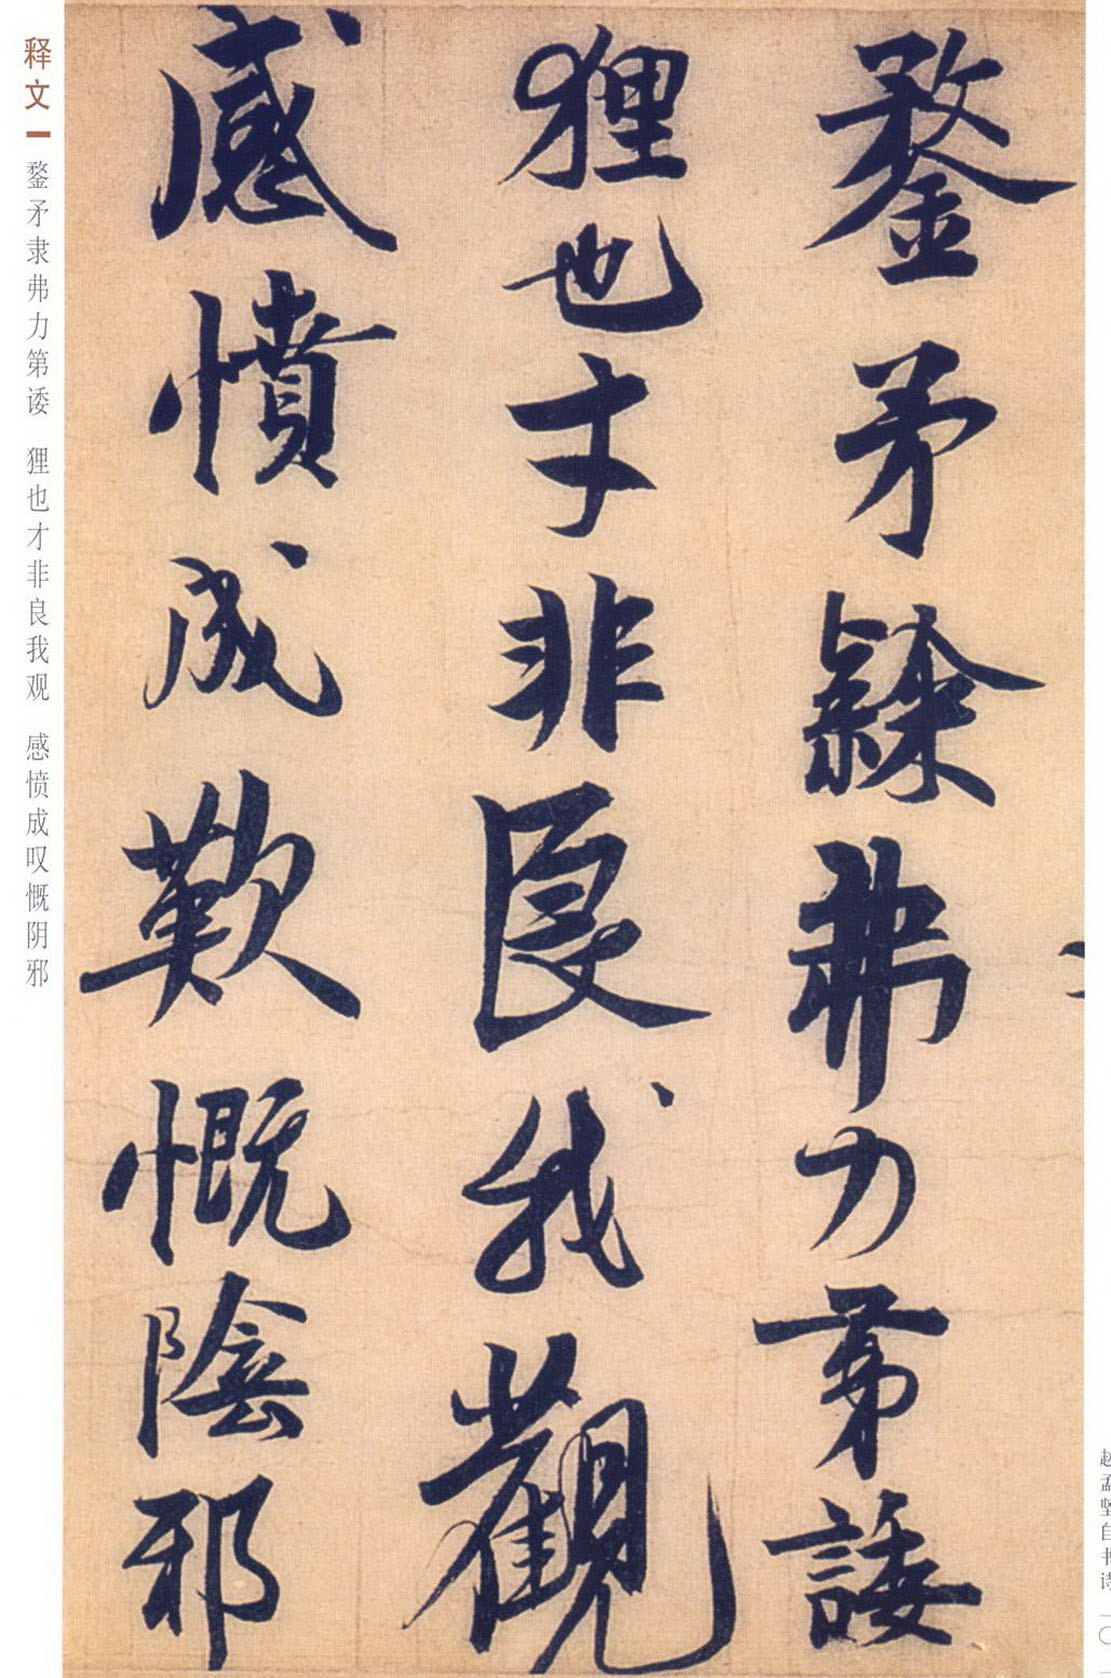 鍪矛隸弗力苐諉
狸也才非良我觀
感憤成歎慨陰邪
释文
鍪矛隶弗力第诿 狸也才非良我观 感愤成叹慨阴邪
赵孟坚自书诗 一〇